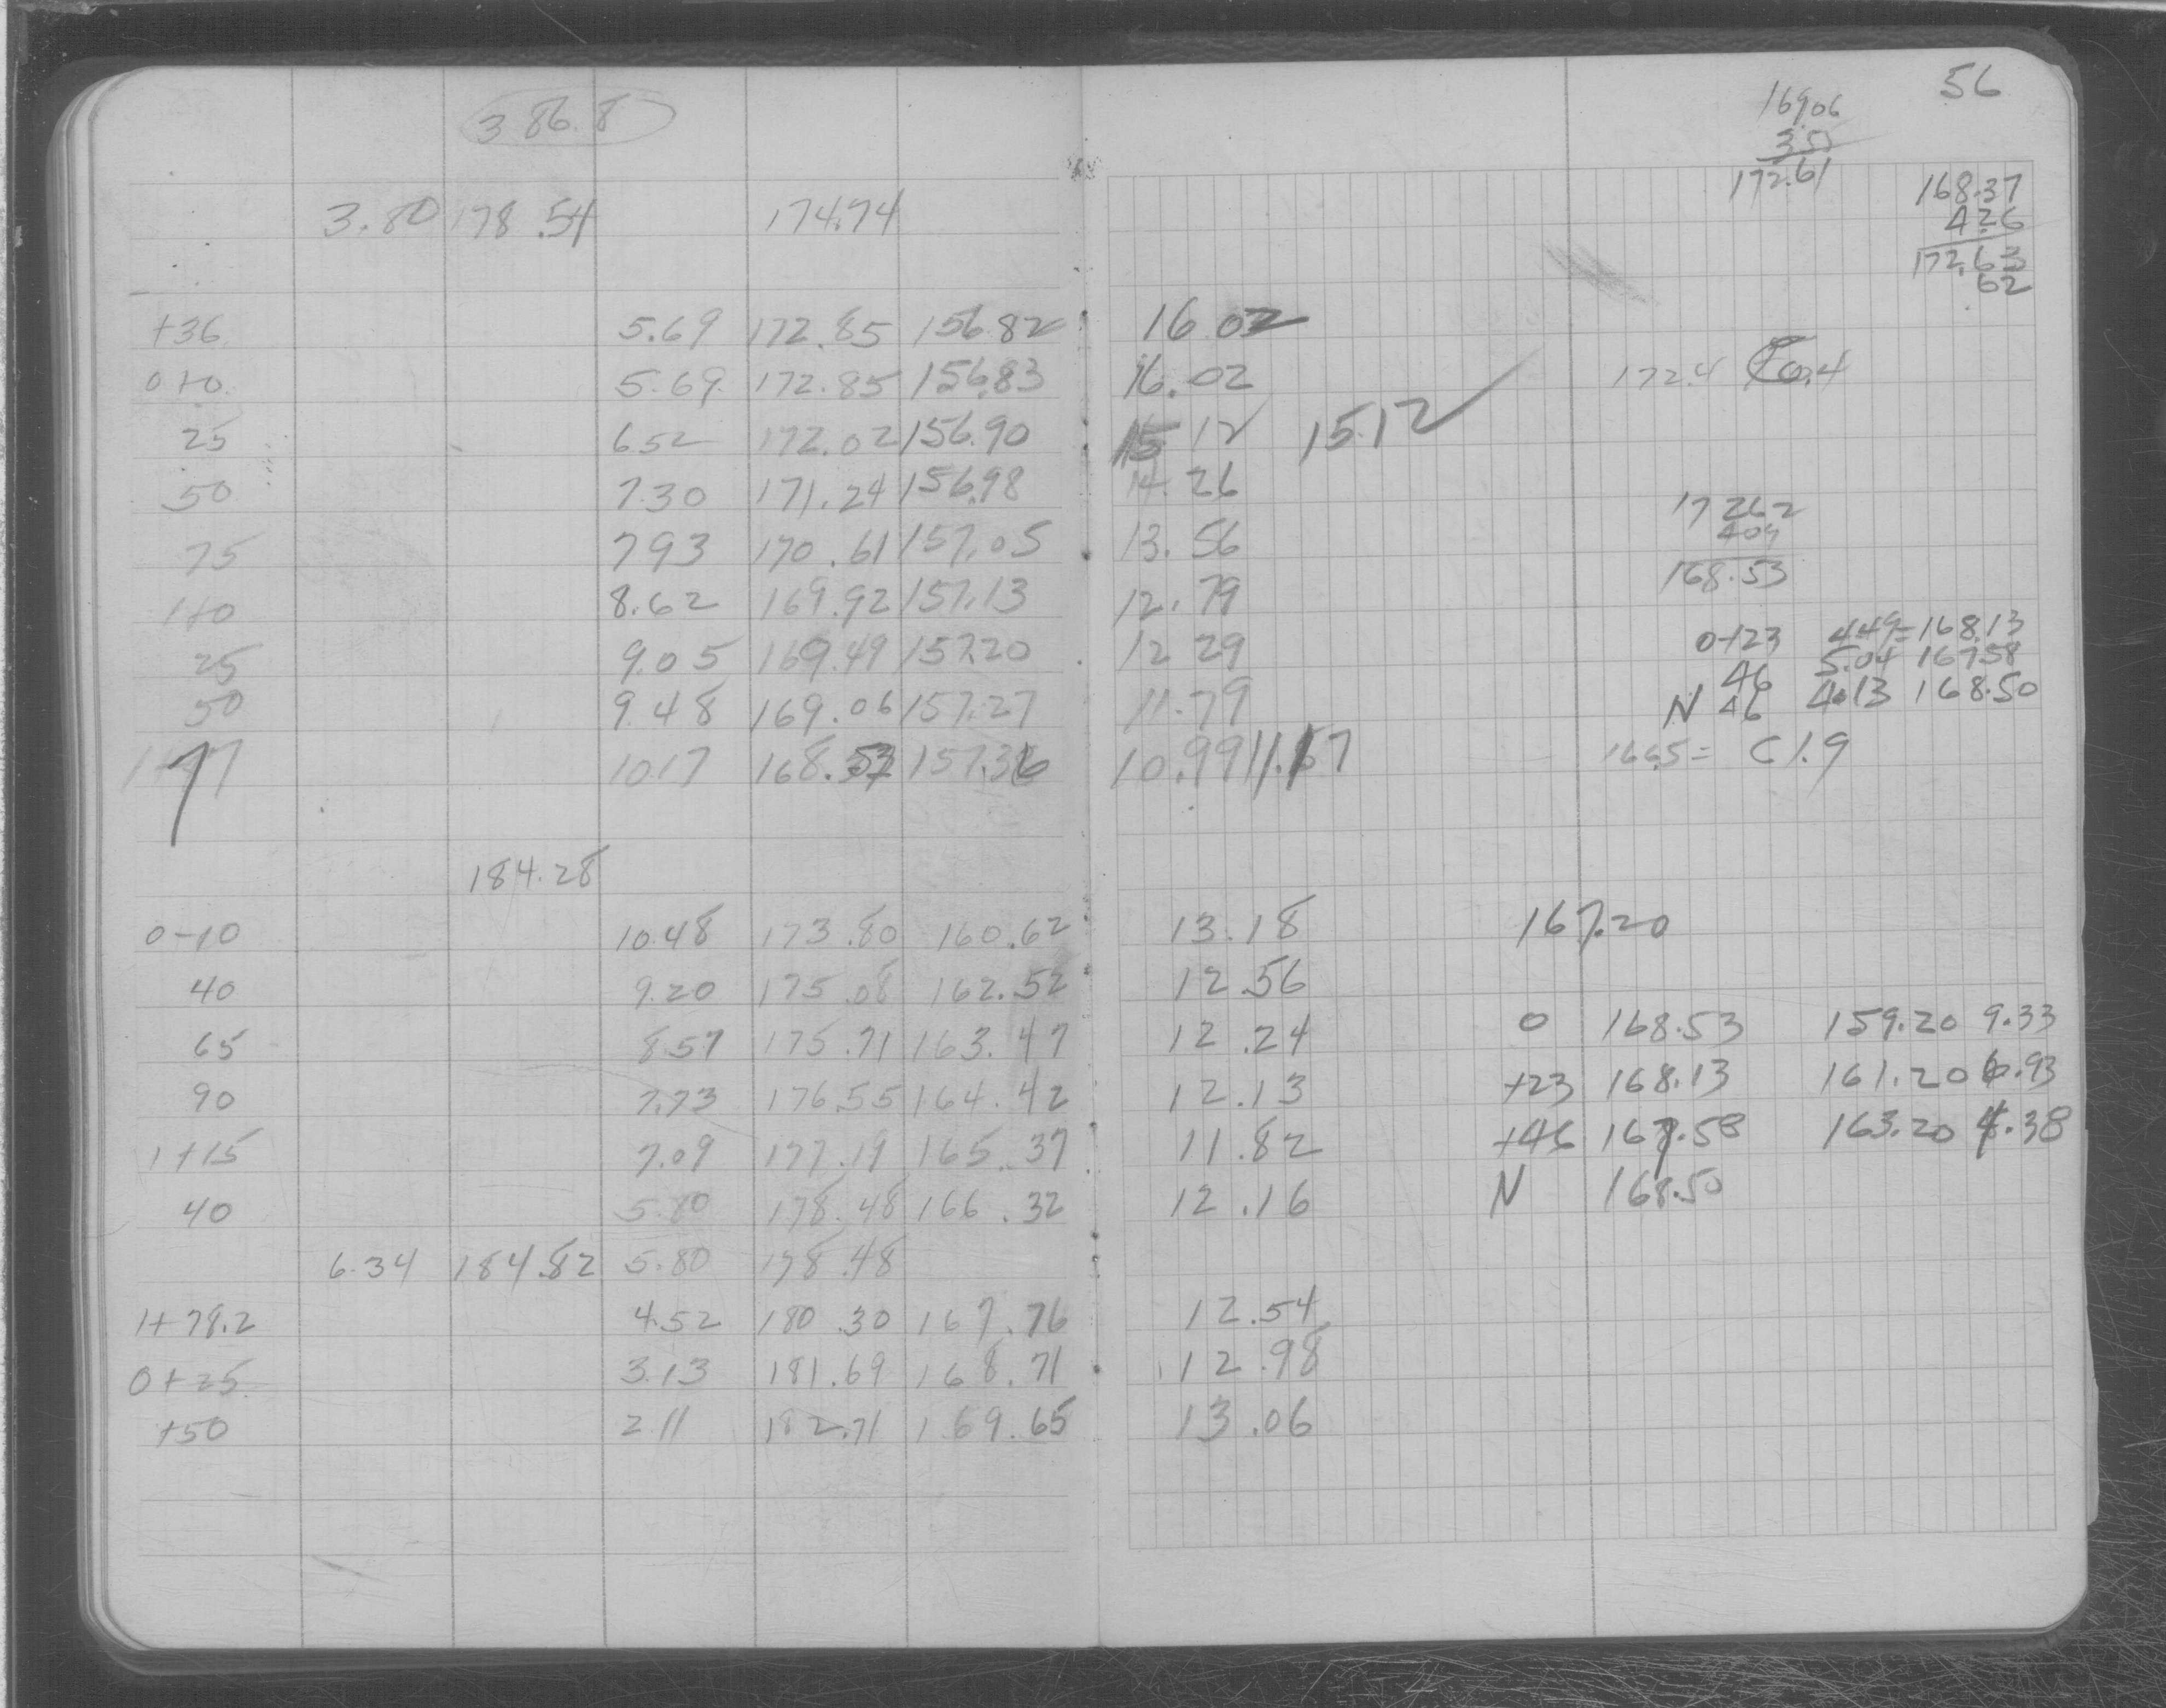 386.8
3.80 178.54 174.74
+36 5.69 172.85 156.82 16.02
0+0 5.69 172.85 156.83 16.02
25 6.52 172.02 156.90 15 12 15.12
50 7.30 171.24 156.98 14.26
75 7.93 170.61 157.05 13.56
1+0 8.62 169.92 157.13 12.79
25 9.05 169.49 157.20 12 29
50 9.48 169.06 157.27 11.79
10.17 157.36 10.99 11.17
184.28
0-10 10.48 173.80 160.62 13.18
40 9.20 175.08 162.52 12.56
65 8.57 175.71 163.47 12.24
90 7.73 176.55 164.42 12.13
1+15 7.09 177.19 165.37 11.82
40 5.80 178.48 166.32 12.16
6.34 184.82 5.80 178.48
1+78.2 4.52 180.30 167.76 12.54
0+25 3.13 181.69 168.71 12.98
+50 2 11 182.71 169.65 13.06
56
169.06
172.61
168.37
4.26
172.63
62
172.4
172 62
409
168.53
0+23 4.49=168.13
46 5.04 167.58
N 46 4.13 168.50
166.5= C1.9
167.20
0 168.53 159.20 9.33
+23 168.13 161.20 6.93
+46 167.58 163.20 4.38
N 168.50